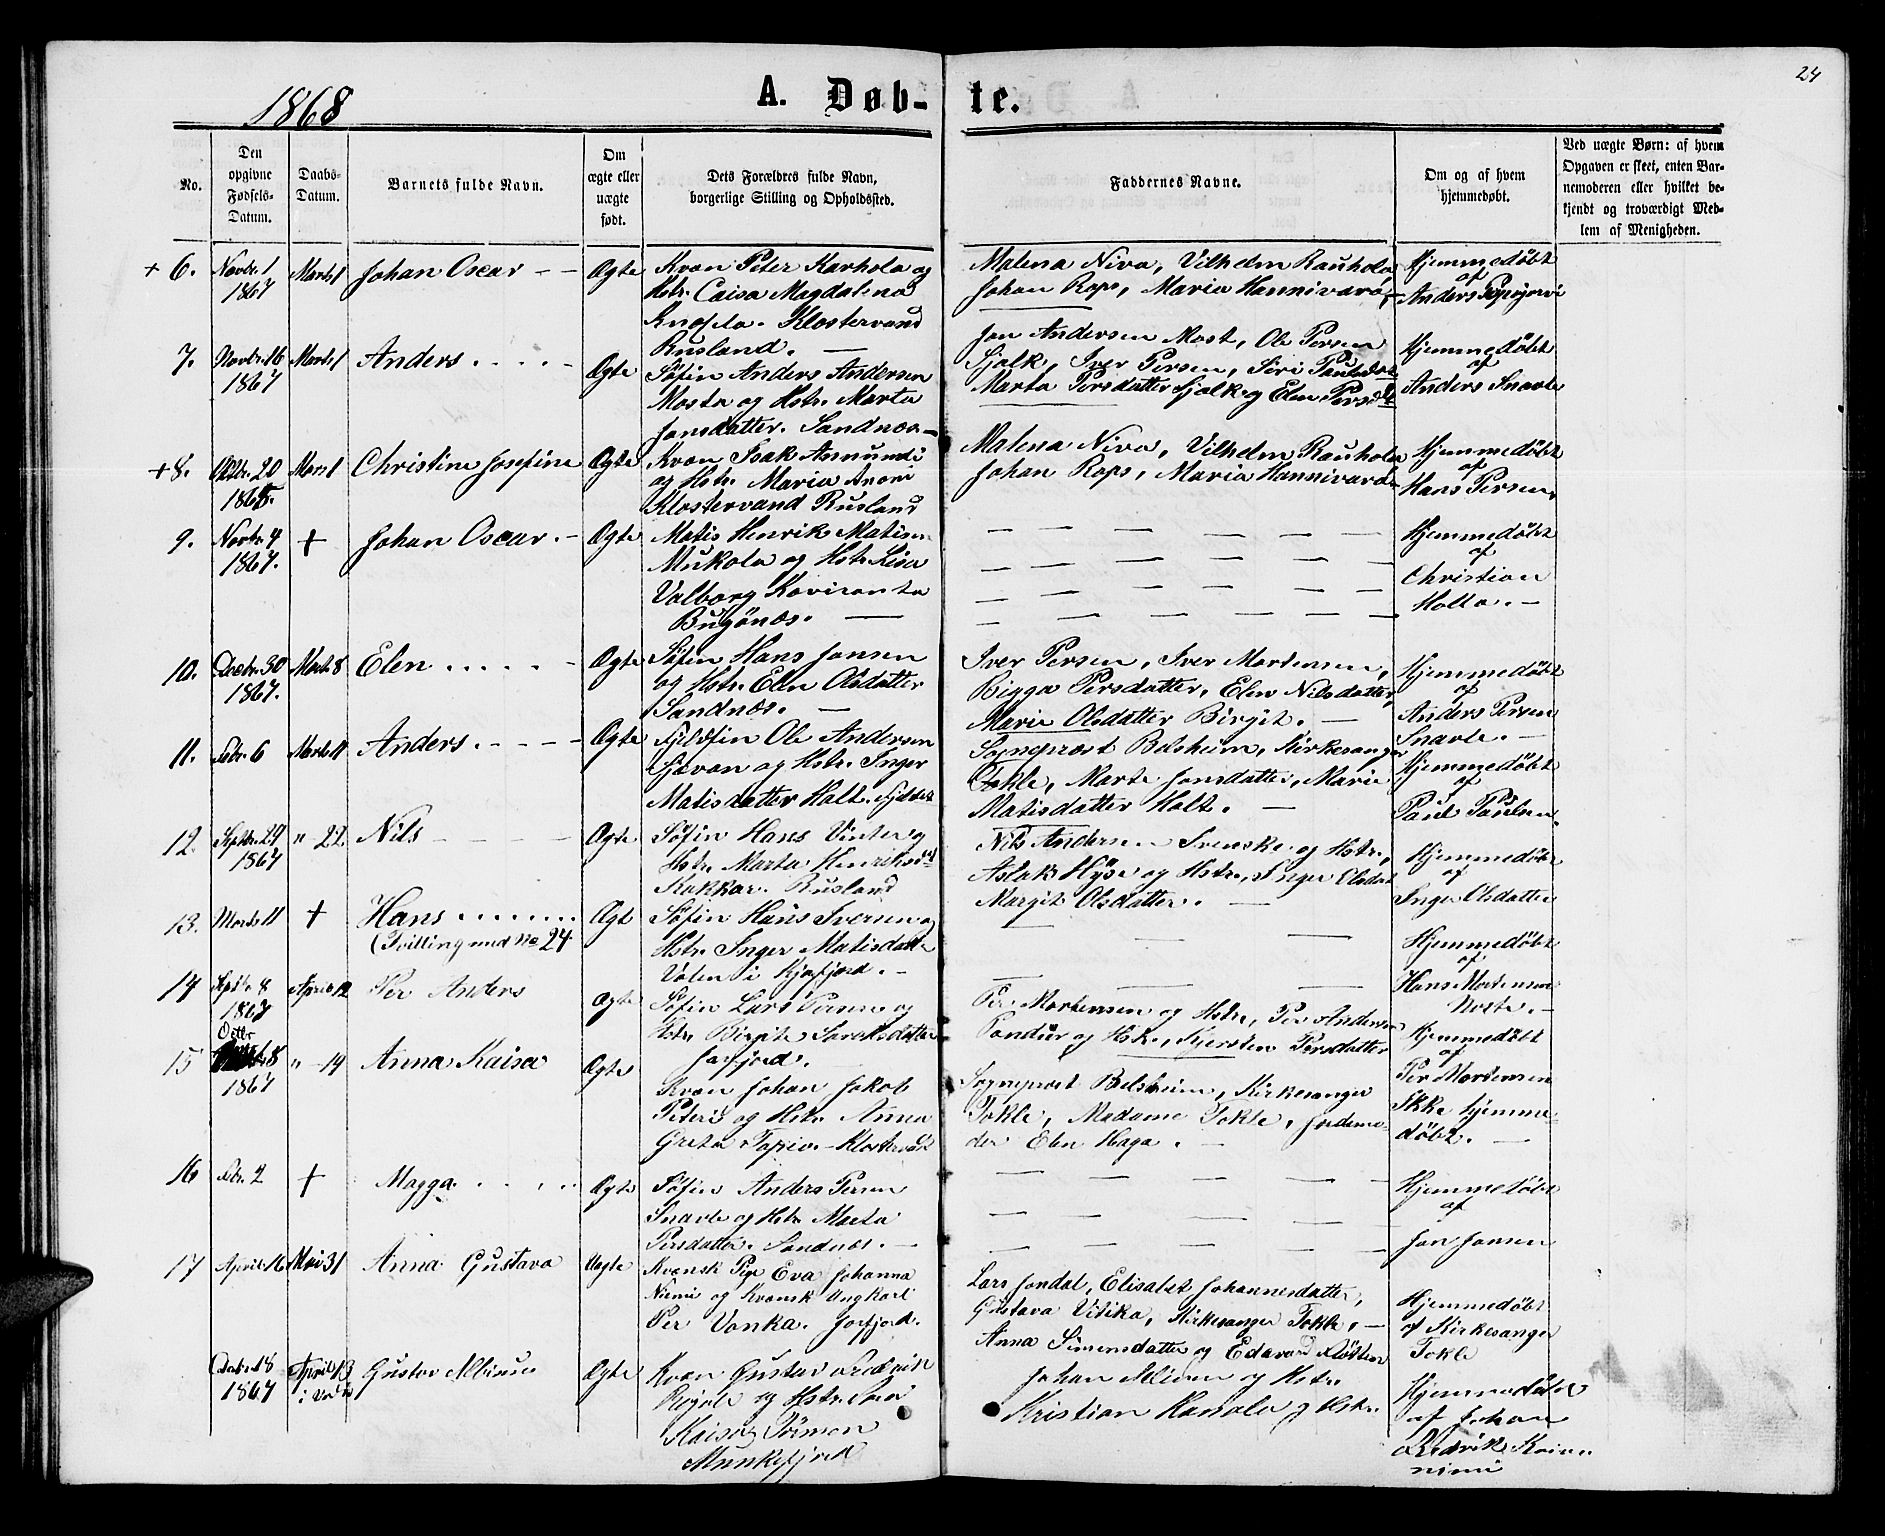 24
1868
A. Døb-te.
No.
Den opgivne Fødsels-Datum.
Daabs-Datum.
Barnets fulde Navn.
Om ægte eller uægte født.
Dets Forældres fulde Navn, borgerlige Stilling og Opholdssted.
Faddernes Navne.
Om og af hvem hjemmedøbt.
Ved uægte Børn: af hvem Opgaven er skeet, enten Barnemoderen eller hvilket bekjendt og troværdigt Medlem af Menigheden.
+ 6.
Novbr. 1
1867
Marts 1
Johan Oscar - -
Ægte
Kvæn Peter Karhola og
Hstr. Caisa Magdalena
Klostervand
Rusland. —
Malena Niva, Vilhelm Rauhola
Johan Rops, Maria Hannivara,
Hjemmedøbt
af
Anders
7.
Novbr. 16
1867
Marts 1
Anders. . . . -
Ægte
Søfin Anders Andersen
Mosta og Hstr. Marta
Jonsdatter. Sandnæs —
Jon Andersen Most, Ole Persen
Sjolk, Iver Persen, Siri Paulsdat
Marta Persdatter Sjolk og Elen Persdtr
Hjemmedøbt
af
Anders Snavle
+ 8.
Oktbr. 20
Marts 1
Christine Josefine
Ægte
Kvæn Isak Asmundi
og Hstr. Maria
Klostervand Rusland
Malena Niva, Vilhelm Rauhola
Johan Rops, Maria Hannivara
Hjemmedøbt
af
Hans Persen.
9.
Novbr. 4
1867.
+
Johan Oscar. -
Ægte
Matis Henrik Matisen
Mukola og Hstr. Lisa
Valborg Koviranta
Bugönæs. —
Hjemmedøbt
af
Christian
Holta. -
10.
Decbr. 30
1867.
Marts 8
Elen . . . . . -
Ægte
Søfin Hans Jonsen
og Hstr. Elen Olsdatter
Sandnæs. —
Iver Persen, Iver Mortensen,
Bigga Persdatter, Elen Nilsdatter,
Marie Olsdatter Birgit. —
Hjemmedøbt
af
Anders Persen
Snavle. -
11.
Febr. 6
Marts 11
Anders. - - - -
Ægte
Fjeldfin Ole Andersen
Sjavan og Hstr. Inger
Matisdatter Holt.
Sogneprost Belsheim, Kirkesanger
Tokle, Marte Jonsdatter, Marie
Matisdatter Holt. —
Hjemmedøbt
af
Paul Paulsen.
12.
Septbr. 29
1867
" 22.
Nils - - - -
Ægte
Søfin Hans Vinter og
Hstr. Marta Henriksdt
Kokkar. Rusland
Nils Andersen Svenske og Hstr.,
Aslak Hyse og Hstr., Inger Olsdat
Margit Olsdatter. —
Hjemmedøbt
af
Inger Olsdatter
13.
Marts 11
+
Hans . . . . . . .
(Tvilling med No 24.
Ægte
Søfin Hans Iversen og
Hstr. Inger Matisdatter
Valen i Kjøfjord. -
Hjemmedøbt
af
Hans Mortensen
Noste. -
14
Septbr. 8
1867
April 12
Per Anders
Ægte
Søfin Lars Persen og
Hstr. Birgite Larsdatter
Jarfjord. —
Per Mortensen og Hstr., Per Andersen
Pandur og Hstr., Kjersten Persdatter
Hjemmedøbt
af
Per Mortensen
15
Octbr
8
1867
" - 19
Anna Kaisa
Ægte
Kvæn Johan Jakob
Peteri og Hstr. Anna
Greta Tapio - Klostervd
Sogneprost Belsheim, Kirkesanger
Tokle, Madame Tokle, Jordemo-
der Elen Haga. -
Ikke hjemme-
døbt. —
16
Febr. 2
+
Magga . . . . .
Ægte
Søfin Anders Persen
Snavle og Hstr. Marta
Persdatter. Sandnæs. —
Hjemmedøbt
af
Jon Jonsen
17
April 16
Mai 31
Anna Gustava
Uægte
Kvænsk Pige Eva Johanna
Niemi og Kvænsk Ungkarl
Per Vonka. Jarfjord.
Lars Jondal, Elisabet Johannesdatter,
Gustava Vitika, Kirkesanger Tokle, -
Anna Simensdatter og Edavard
Hjemmedøbt
af Kirkesanger
Tokle
Octobr 18
1867
April 13
Gustav Albinus
Ægte
Kvæn Gustav Fredrik
og Hstr.
Kaisa
Munkefjord
Johan og Hstr.
Kristian Hanola og Hstr.
Hjemmedøbt
af Johan
Fredrik
niemi